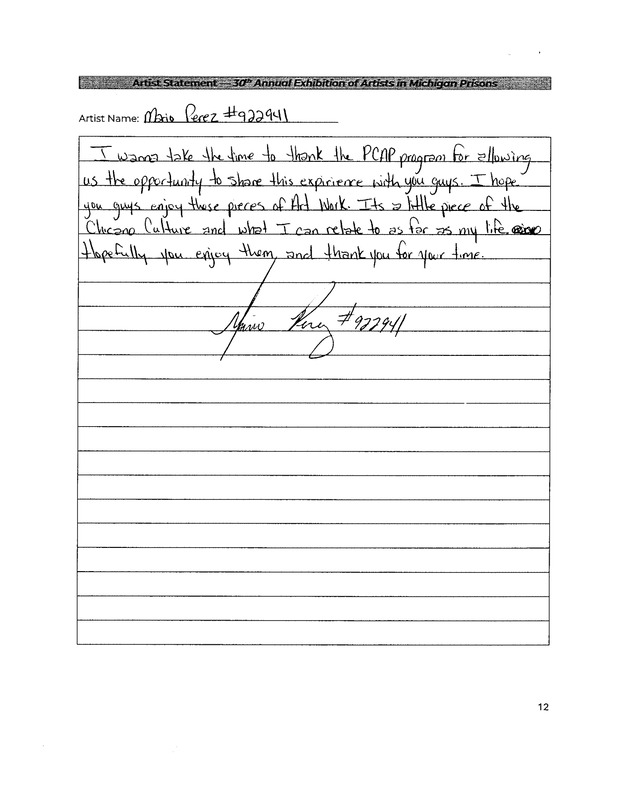 Artist Statement — 30th Annual Exhibition of Artists in Michigan Prisons
Artist Name: Mario Perez #922941
I wanna take the time to thank the PCAP program for allowing
us the opportunity to share this expirience with you guys. I hope
you guys enjoy those pieces of Art Work. Its a little piece of the
Chicano Culture and what I can relate to as far as my life.
Hopefully you enjoy them, and thank you for your time.
Mario Perez #922941
12